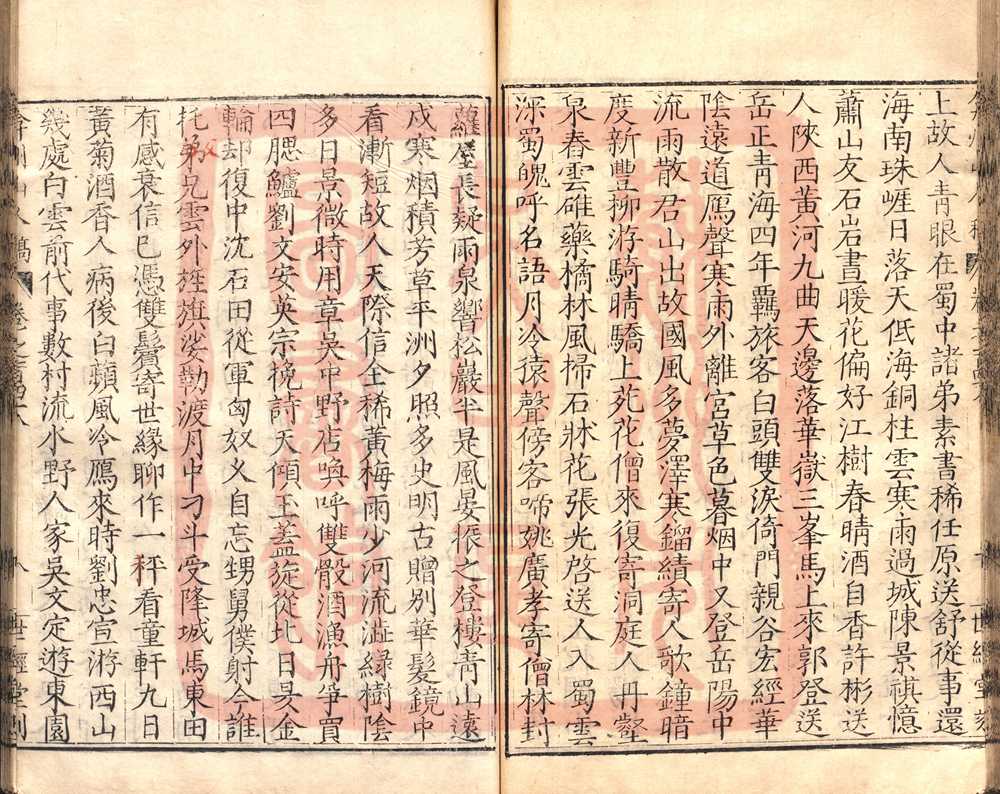 上故人青眼在蜀中諸弟素書稀任原送舒從事還
海南珠崕日落天低海銅柱雲寒雨過城陳景祺憶
蕭山友石岩晝暖花偏好江樹春晴酒自香許彬送
人陝西黃河九曲天邊落華嶽三峯馬上來郭登送
岳正青海四年羈旅客白頭雙淚倚門親谷宏經華
陰遠道鴈聲寒雨外離宮草色暮烟中又登岳陽中
流雨散君山出故國風多夢澤寒鎦績寄人歌鐘暗
度新豐柳游騎晴驕上苑花僧來復寄洞庭人丹壑
泉舂雲碓藥橘林風掃石牀花張光啓送人入蜀雲
深蜀魄呼名語月冷猿聲傍客啼姚廣孝寄僧林封
蘿屋長疑雨泉響松巖半是風晏振之登樓靑山遠
戍寒烟積芳草平洲夕照多史明古贈別華髮鏡中
看漸短故人天際信全稀黃梅雨少河流澁綠樹陰
多日景微時用章吳中野店喚呼雙骰酒漁舟爭買
四腮鱸劉文安英宗挽詩天傾玉蓋旋從北日昃金
輪却復中沈石田從軍匈奴义自忘甥舅僕射今誰
托弟兄雲外旌旗娑勒渡月中刁斗受隆城馬東田
有感衰信已憑雙鬢寄世緣聊作一秤看童軒九日
黃菊酒香人病後白蘋風冷鴈來時劉忠宣游西山
幾處白雲前代事數村流水野人家吳文定遊東園
卷之
八
世經堂刻